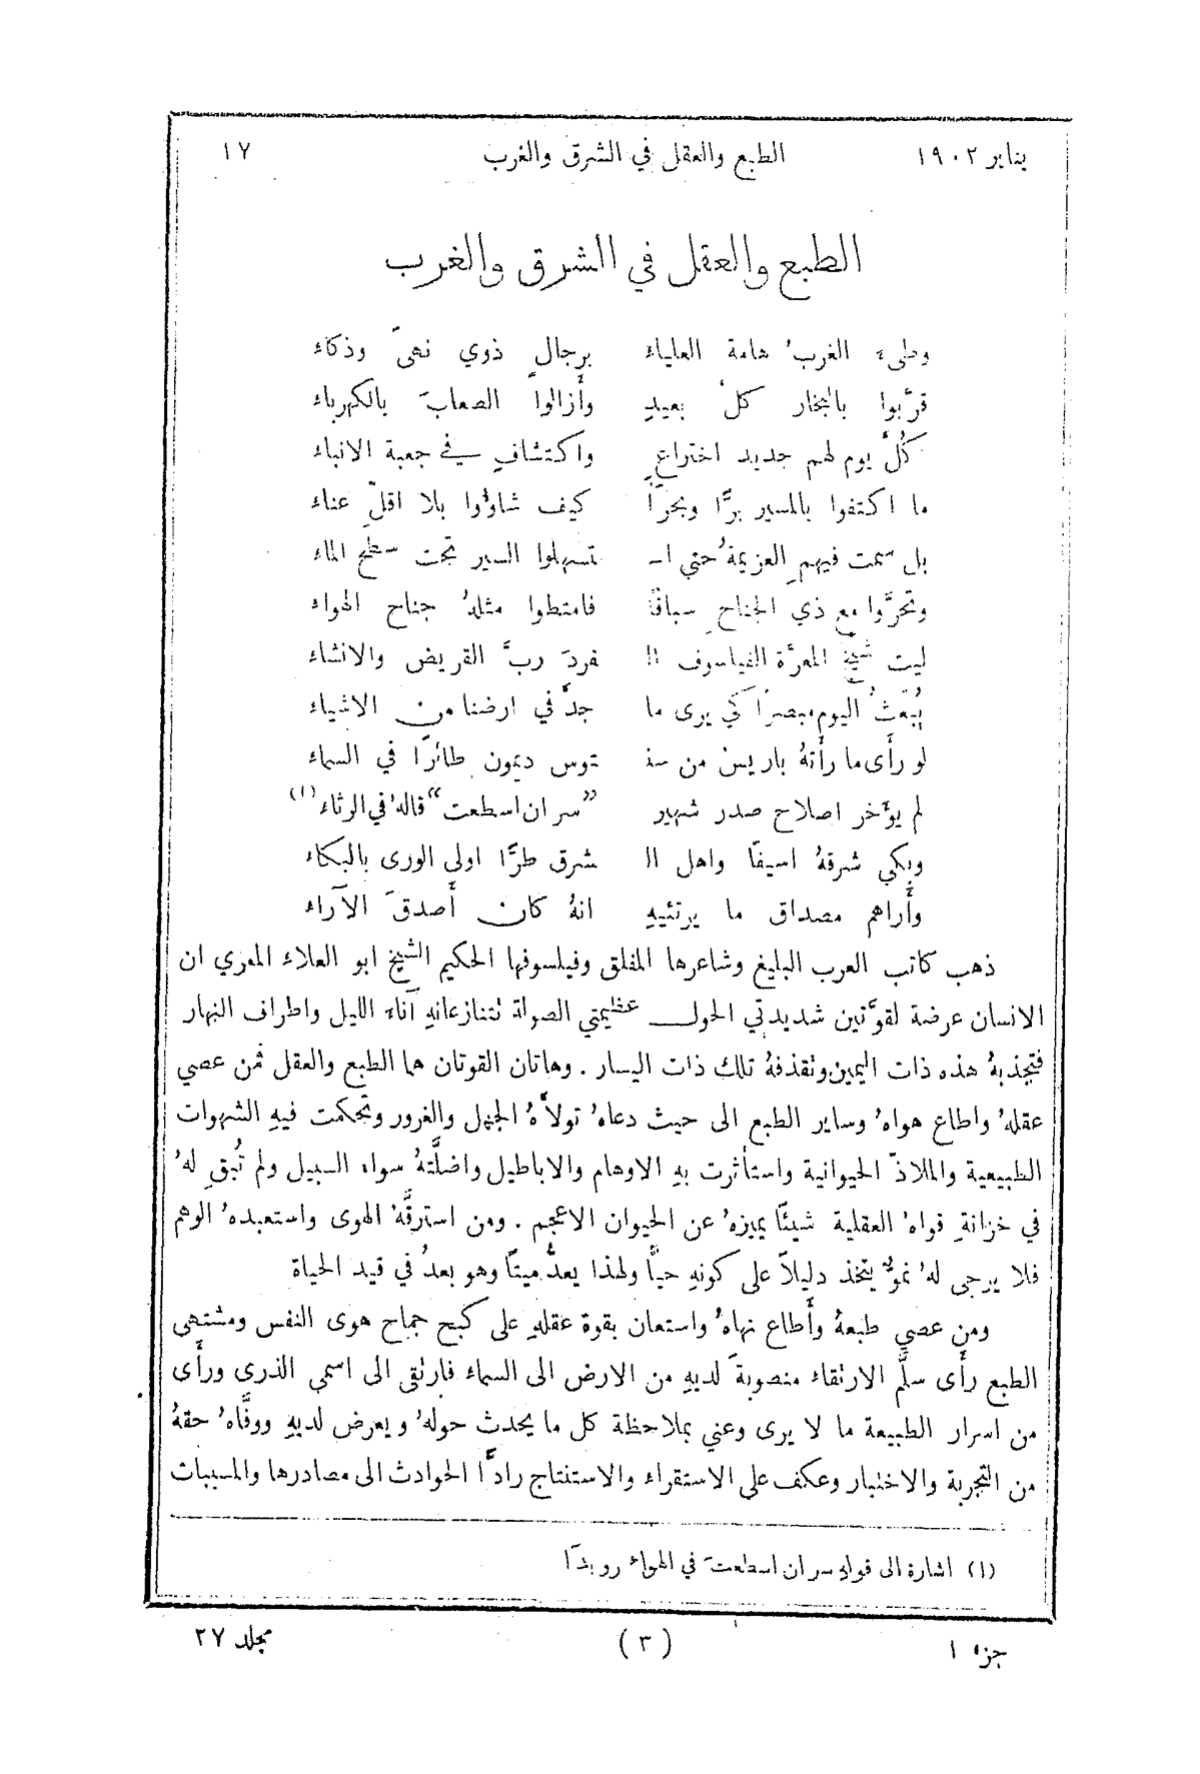 يناير ١٩٠٢ الطبع والعقل في الشرق والغرب ١٧
الطبع والعقل في الشرق والغرب
وطىء الغربُ هامة العلياء برجالٍ ذوي نهىً وذكاء
قرَّبوا بالبخار كلَّ بعيدٍ وأَزالوا الصعابَ بالكهرباء
كُلَّ يوم لهم جديد اختراعٍ واكتشافٍ في جعبة الانباء
ما اكتفوا بالمسير برًّا وبحرًا كيف شاؤوا بلا اقلّ عناء
بل سمت فيهمِ العزيمةُ حتى اسـ ـتسهلوا السير تحت سطح الماء
وتحرَّوا مع ذي الجناح سباقًا فامتطوا مثلهُ جناح الهواء
ليت شيخ المعرَّة الفيلسوف الـ ـفردَ ربَّ القريض والانشاء
يُبعَثُ اليوم مبصرًا كي يرى ما جدَّ في ارضنا من الاشياء
لو رأَى ما رأَتهُ باريس من سنـ ـتوس ديمون طائرًا في السماء
لم يؤخر اصلاح صدر شهير "سر ان اسطعت" قالهُ في الرثاء (١)
وبكى شرقهُ اسيفًا واهل الـ ـشرق طرًّا اولى الورى بالبكاء
وأَراهم مصداق ما يرتئيهِ انهُ كان أَصدقَ الآراء
ذهب كاتب العرب البليغ وشاعرها المفلق وفيلسوفها الحكيم الشيخ ابو العلاء المعري ان
الانسان عرضة لقوَّتين شديدتي الحول عظيمتي الصولة تتنازعانهِ آناء الليل واطراف النهار
فتجذبهُ هذه ذات اليمين وتقذفهُ تلك ذات اليسار . وهاتان القوتان هما الطبع والعقل فمن عصي
عقلهُ واطاع هواهُ وساير الطبع الى حيث دعاهُ تولاَّهُ الجهل والغرور وتحكمت فيهِ الشهوات
الطبيعية والملاذّ الحيوانية واستأثرت بهِ الاوهام والاباطيل واضلَّتهُ سواء السبيل ولم تُبقِ لهُ
في خزانةِ قواهُ العقلية شيئًا يميزهُ عن الحيوان الاعجم . ومن استرقَّهُ الهوى واستعبدهُ الوهم
فلا يرجى لهُ نموٌّ يتخذ دليلاً على كونهِ حيًّا ولهذا يعدُّ ميتًا وهو بعدُ في قيد الحياة
ومن عصي طبعهُ وأَطاع نهاهُ واستعان بقوة عقلهِ على كبح جماح هوى النفس ومشتهى
الطبع رأَى سلَّم الارتقاء منصوبةً لديهِ من الارض الى السماء فارتقى الى اسمى الذرى ورأَى
من اسرار الطبيعة ما لا يرى وعني بملاحظة كل ما يحدث حولهُ ويعرض لديهِ ووفَّاهُ حقهُ
من التجربة والاختبار وعكف على الاستقراء والاستنتاج رادًّا الحوادث الى مصادرها والمسببات
(١) اشارة الى قولهِ سر ان اسطعتَ في الهواء رويدًا
جزء ١ (٣) مجلد ٢٧